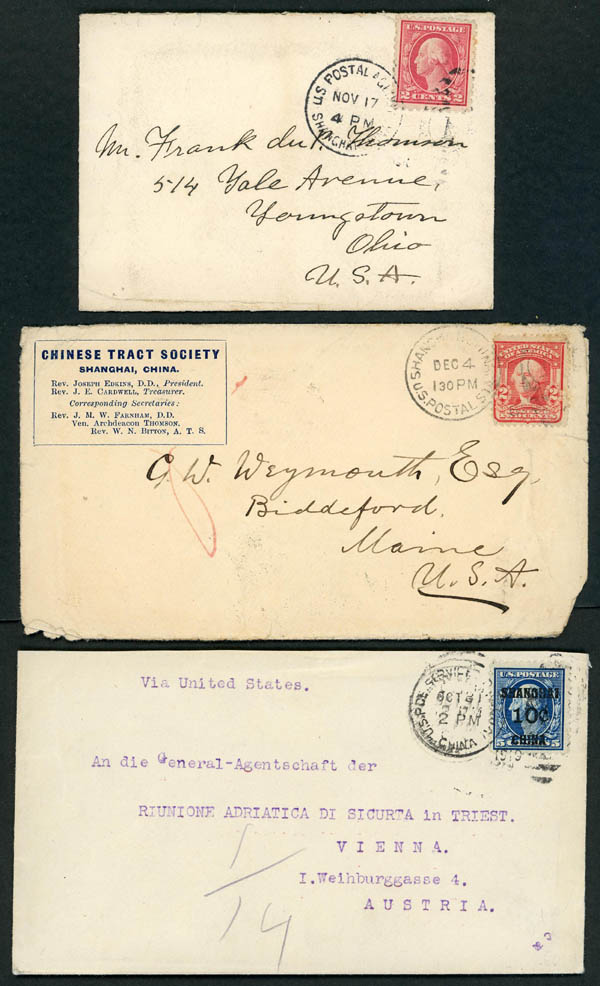 U.S. POSTAGE
2 CENTS 2
U.S. POSTAL
SHANGHAI
NOV 17
4 PM
Mr. Frank du P. Thomson
514 Yale Avenue,
Youngstown
Ohio
U.S.A.
CHINESE TRACT SOCIETY
SHANGHAI, CHINA.
Rev. Joseph Edkins, D.D., President.
Rev. J. E. Cardwell, Treasurer.
Corresponding Secretaries:
Rev. J. M. W. Farnham, D.D.
Ven. Archdeacon Thomson.
Rev. W. N. Bitton, A. T. S.
SHANGHAI
DEC 4
130 PM
U.S. POSTAL
UNITED STATES
OF AMERICA
2 2
POSTAGE
TWO CENTS
G. W. Weymouth, Esq.
Biddeford,
Maine
U.S.A.
Via United States.
2 PM
CHINA
U.S. POSTAGE
SHANGHAI
10¢
CHINA
5
1919
An die General-Agentschaft der
RIUNIONE ADRIATICA DI SICURTA in TRIEST.
VIENNA.
I.Weihburggasse 4.
AUSTRIA.
1/14